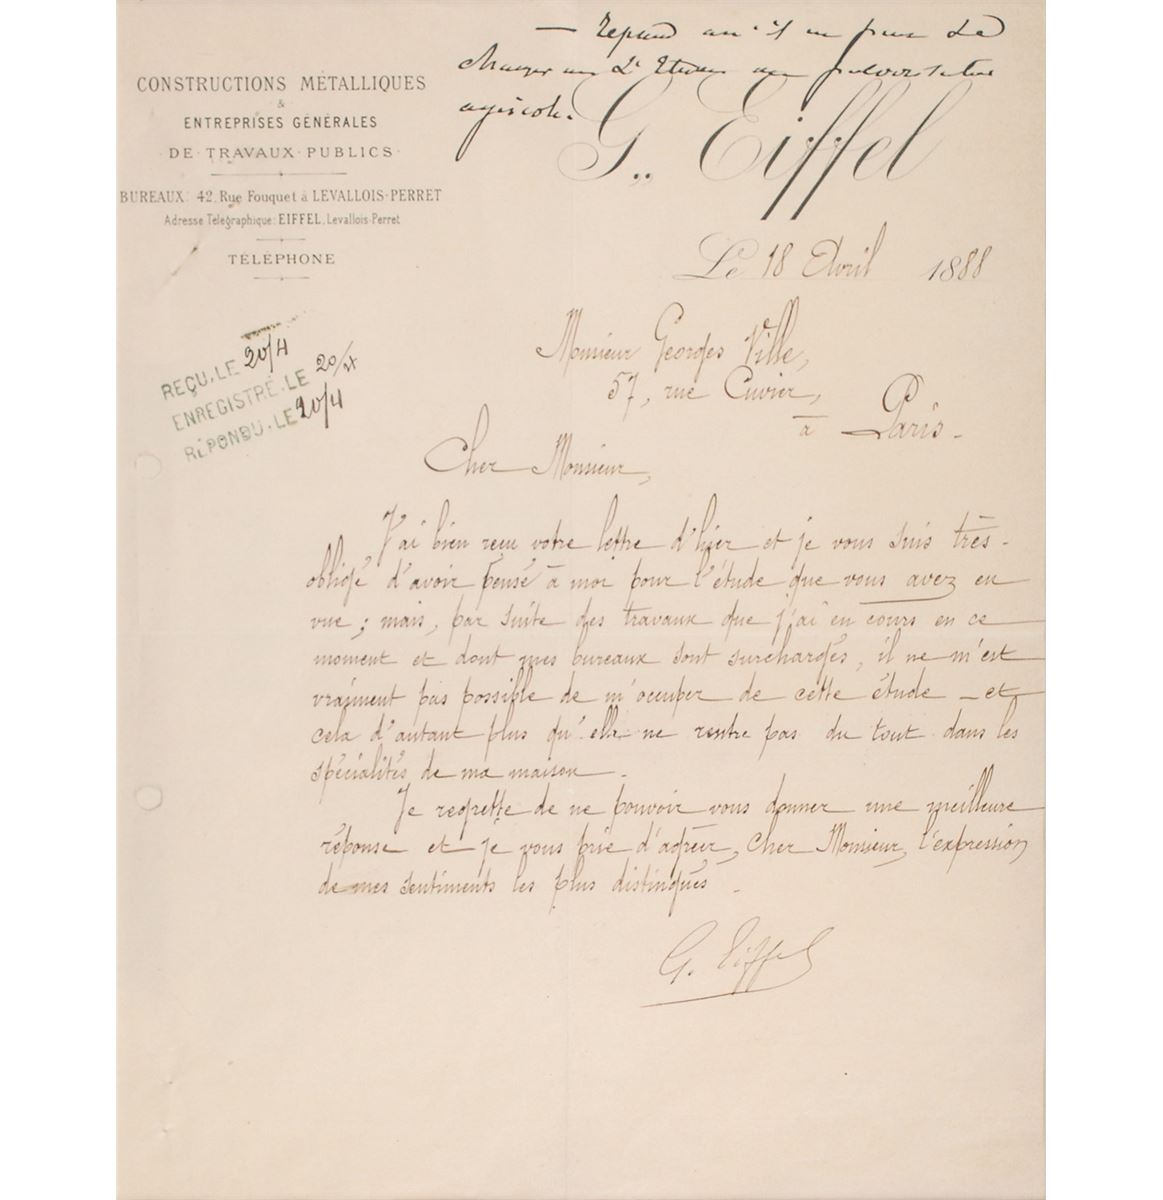 — Repond qu'il ne peut se
charger de l'etude du pulverisateur
agricole.
CONSTRUCTIONS MÉTALLIQUES
&
ENTREPRISES GÉNÉRALES
DE TRAVAUX PUBLICS
G. Eiffel
BUREAUX: 42, Rue Fouquet à LEVALLOIS-PERRET
Adresse Télégraphique: EIFFEL, Levallois-Perret
TÉLÉPHONE
Le 18 Avril 1888
Monsieur Georges Ville,
57, rue Cuvier,
à Paris.
REÇU, LE 20/4
ENREGISTRÉ, LE 20/4
RÉPONDU, LE 20/4
Cher Monsieur,
J'ai bien reçu votre lettre d'hier et je vous suis très
obligé d'avoir pensé à moi pour l'étude que vous avez en
vue; mais, par suite des travaux que j'ai en cours en ce
moment et dont mes bureaux sont surchargés, il ne m'est
vraiment pas possible de m'occuper de cette étude — et
cela d'autant plus qu'elle ne rentre pas du tout dans les
spécialités de ma maison.
Je regrette de ne pouvoir vous donner une meilleure
réponse et je vous prie d'agréer, cher Monsieur, l'expression
de mes sentiments les plus distingués.
G. Eiffel